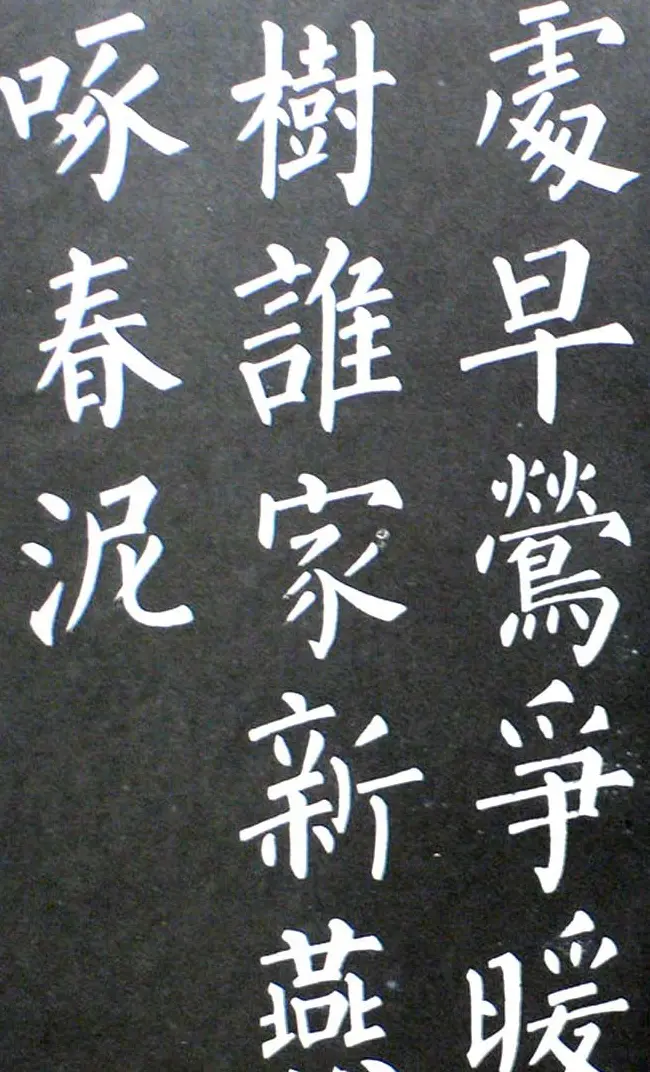 處早鶯爭暖
樹誰家新燕
啄春泥